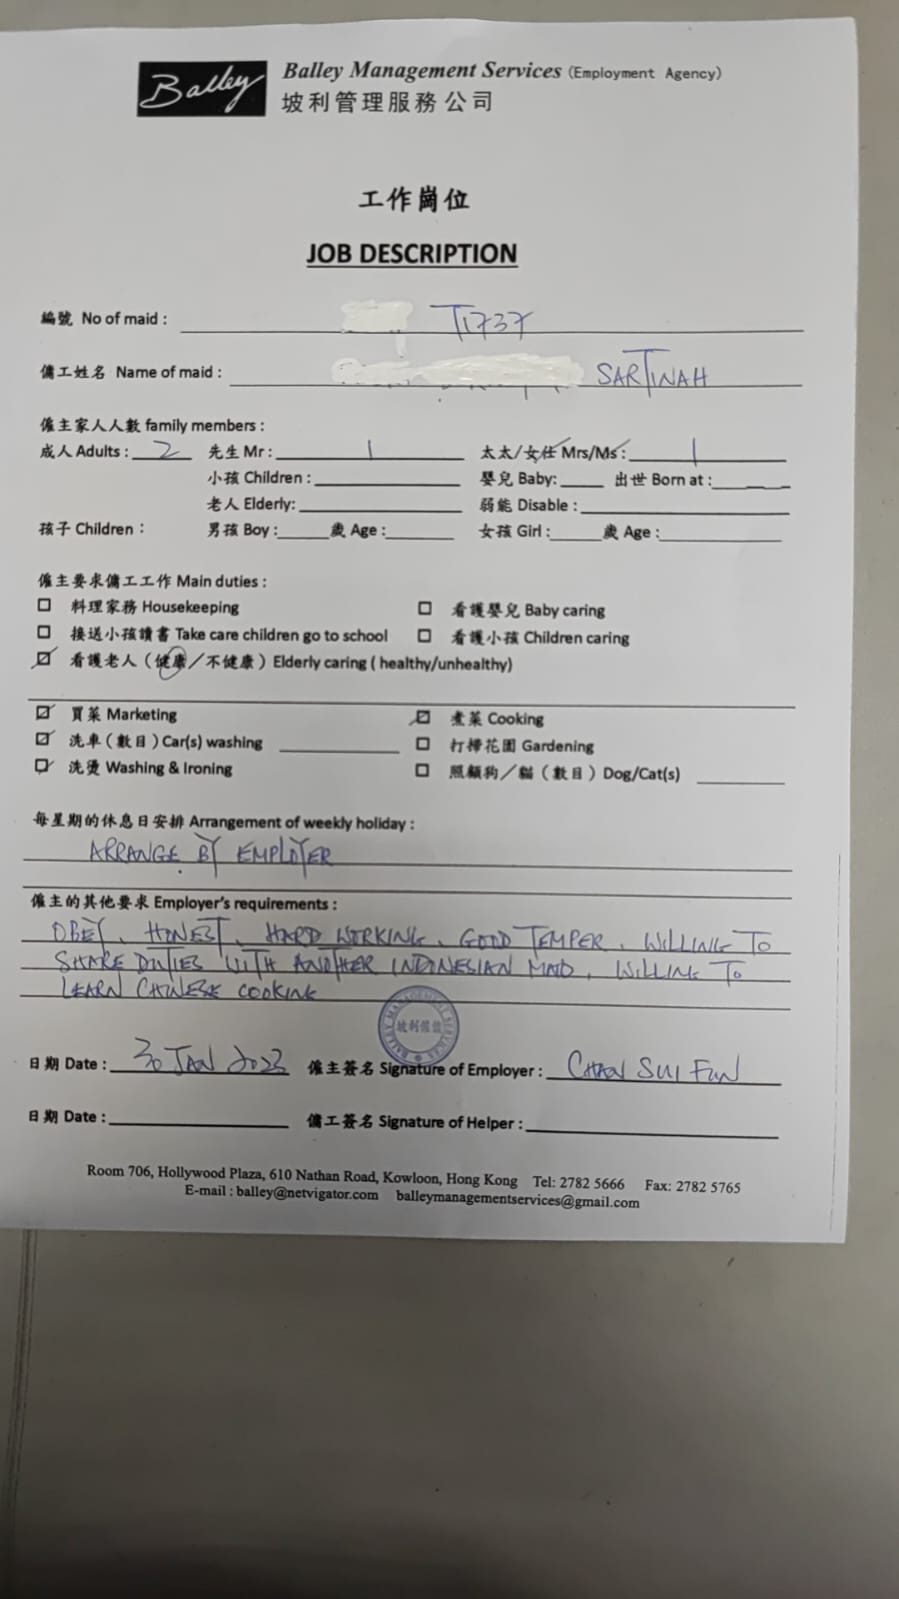 Balley Balley Management Services (Employment Agency)
坡利管理服務公司
工作崗位
JOB DESCRIPTION
編號 No of maid : T1737
傭工姓名 Name of maid : SARTINAH
僱主家人人數 family members :
成人 Adults : 2 先生 Mr : 1 太太/女仕 Mrs/Ms : 1
小孩 Children : 嬰兒 Baby: 出世 Born at :
老人 Elderly: 弱能 Disable :
孩子 Children : 男孩 Boy : 歲 Age : 女孩 Girl : 歲 Age :
僱主要求傭工工作 Main duties :
料理家務 Housekeeping 看護嬰兒 Baby caring
接送小孩讀書 Take care children go to school 看護小孩 Children caring
看護老人（健康／不健康）Elderly caring ( healthy/unhealthy)
買菜 Marketing 煮菜 Cooking
洗車（數目）Car(s) washing 打掃花園 Gardening
洗燙 Washing & Ironing 照顧狗／貓（數目）Dog/Cat(s)
每星期的休息日安排 Arrangement of weekly holiday :
ARRANGE BY EMPLOYER
僱主的其他要求 Employer's requirements :
OBEY, HONEST, HARD WORKING, GOOD TEMPER, WILLING TO
SHARE DUTIES WITH ANOTHER INDONESIAN MAID, WILLING TO
LEARN CHINESE COOKING
BALLEY MANAGEMENT SERVICES
日期 Date : 30 JAN 2023 僱主簽名 Signature of Employer : CHAN SUI FUN
日期 Date : 傭工簽名 Signature of Helper :
Room 706, Hollywood Plaza, 610 Nathan Road, Kowloon, Hong Kong Tel: 2782 5666 Fax: 2782 5765
E-mail : balley@netvigator.com balleymanagementservices@gmail.com